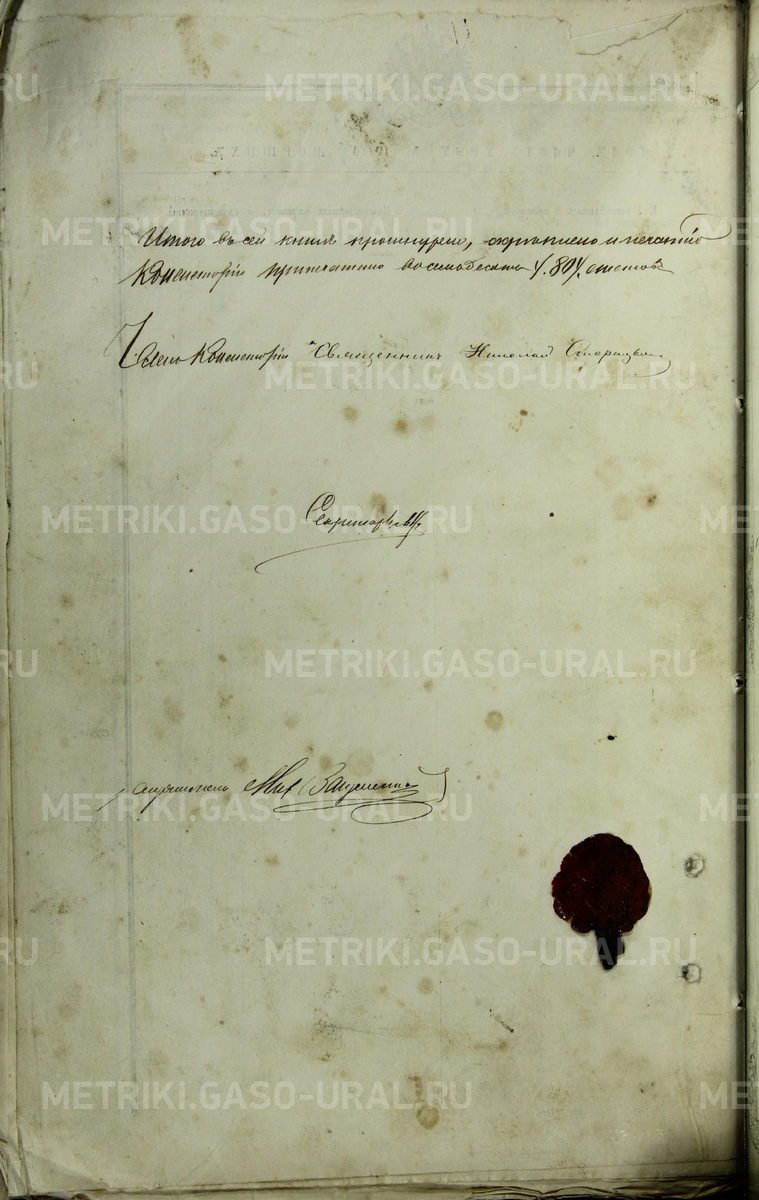 METRIKI.GASO-URAL.RU
Итого въ сей книгѣ прошнуровано, скрѣплено и печатью
Консисторіи припечатано восемьдесятъ /. 80 /. листовъ
Членъ Консисторіи Священникъ Николай
METRIKI.GASO-URAL.RU
Секретарь
METRIKI.GASO-URAL.RU
METRIKI.GASO-URAL.RU
Мих
METRIKI.GASO-URAL.RU
METRIKI.GASO-URAL.RU
METRIKI.GASO-URAL.RU